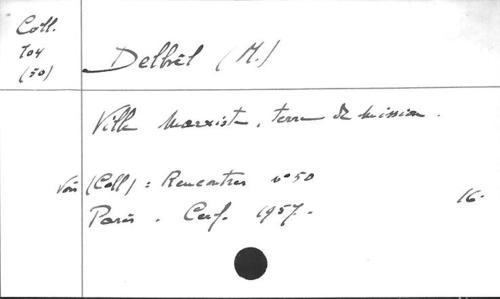 Coll.
704
(50)
Delbrêl (M.)
Ville marxiste, terre de mission.
Voir (Coll) : Rencontres n° 50
Paris. Cerf. 1957. 16.